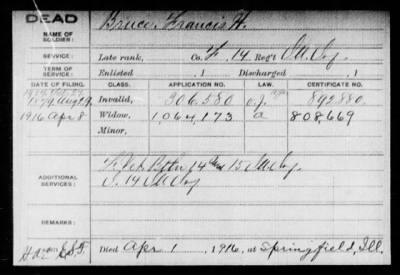 DEAD
NAME OF SOLDIER:
Bruce, Francis H.
SERVICE:
Late rank, Co. F, 14 Reg't Ill Inf.
TERM OF SERVICE:
Enlisted , 1 Discharged , 1
DATE OF FILING. CLASS. APPLICATION NO. LAW. CERTIFICATE NO.
1879 Aug 29 Invalid, 306,580 892,880
1916 Apr 8 Widow, 1,064,173 a 808,669
Minor,
ADDITIONAL SERVICES:
14 15 Ill Inf
14 Ill Inf
REMARKS:
Died Apr 1, 1916, at Springfield, Ill.